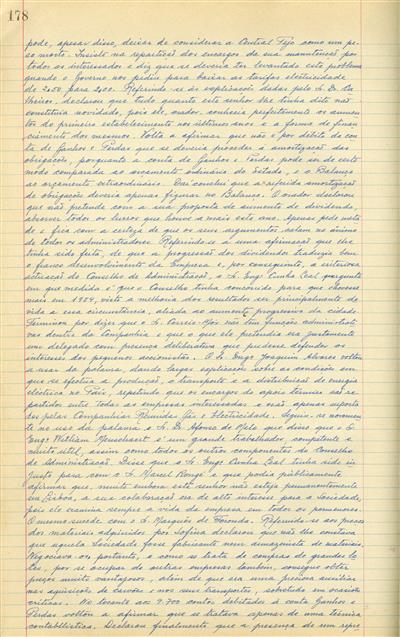 178
pode, apesar disso, deixar de considerar a Central Tejo como um pe-
so morto. Insiste na repartição dos encargos da sua manutenção por
todos os interessados e diz que se deveria ter levantado este problema
quando o Governo nos pediu para baixar as tarifas electricidade
de 2$50 para 2$00. Referindo-se às explicações dadas pelo Sr. Dr.
declarou que tudo quanto este senhor lhe tinha dito não
constituia novidade, pois ele, orador, conhecia perfeitamente os aumen-
tos do primeiro estabelecimento nos últimos anos e a forma de finan-
ciamento dos mesmos. Volta a afirmar que não é por débito da con-
ta de Ganhos e Perdas que se deveria proceder à amortização das
obrigações, porquanto a conta de Ganhos e Perdas pode ser de certo
modo comparada ao orçamento ordinário do Estado, e o Balanço
ao orçamento extraordinário. Daí conclui que a referida amortização
de obrigações deveria apenas figurar no Balanço. O orador declarou
que não pretende com a sua proposta de aumento de dividendo,
absorver todos os lucros que houve a mais este ano. Apenas pede
e fica com a certeza de que os seus argumentos calam no ânimo
de todos os administradores. Referindo-se a uma afirmação que lhe
tinha sido feita, de que a progressão dos dividendos traduzia bem
o franco desenvolvimento da Empresa e, por conseguinte, a criteriosa
actuação do Conselho de Administração, o Sr. Eng. Cunha Leal pergunta
em que medida é que o Conselho tinha concorrido para que chovesse
mais em 1954, visto a melhoria dos resultados ser principalmente de-
vida a essa circunstância, aliada ao aumento progressivo da cidade.
Terminou por dizer que o Sr. não tem funções administrati-
vas dentro da Companhia e que o que ele pretendia era justamente
um delegado com presença deliberativa que pudesse defender os
interesses dos pequenos accionistas. O Sr. Engo Joaquim Alvares voltou
a usar da palavra, dando largas explicações sobre as condições em
que se efectua a produção, o transporte e a distribuição de energia
electrica no País, repetindo que os encargos do apoio térmico são re-
partidos entre todas as empresas interessadas e não apenas suporta-
dos pelas Companhias Reunidas Gás e Electricidade. Seguiu-se novamen-
te no uso da palavra o Sr. Dr. Afonso de Melo que disse que o Sr.
Engo William é um grande trabalhador, competente e
muito util, assim como todos os outros componentes do Conselho
de Administração. Disse que o Sr. Engo Cunha Leal tinha sido in-
justo para com o Sr. Marcel e que podia publicamente
afirmar que, muito embora este senhor não esteja permanentemente
em Lisboa, a sua colaboração era de alto interesse para a Sociedade,
pois ele examina sempre a vida da empresa em todos os pormenores.
O mesmo sucede com o Sr. Marquês de Foronda. Referindo-se aos preços
dos materiais adquiridos por Sofina declarou que não lhe constava
que aquela Sociedade fosse fabricante nem armazenista de materiais.
Negociava-os, portanto, e como se trata de compras de grandes lo-
tes, por se ocupar de outras empresas também, consegue obter
preços muito vantajosos, além de que era uma preciosa auxiliar
nas aquisições de carvões e nos seus transportes, sobretudo em ocasiões
criticas. No tocante aos 9.700 contos debitados à conta Ganhos e
Perdas voltou a afirmar que se tratava apenas de uma técnica
contabilistica. Declarou finalmente que a presença de um repre-